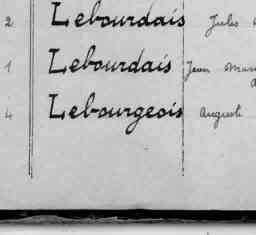 2 Lebourdais Jules
1 Lebourdais Jean
4 Lebourgeois August